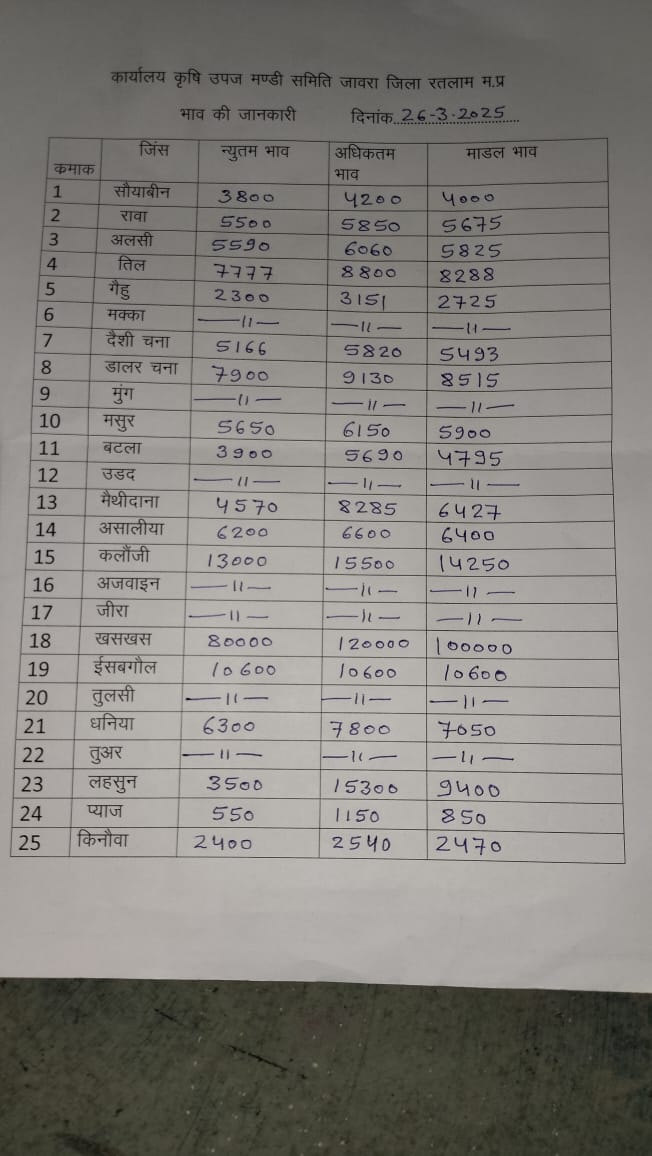 कार्यालय कृषि उपज मण्डी समिति जावरा जिला रतलाम म.प्र
भाव की जानकारी दिनांक..26-3-2025......
कमाक जिंस न्युतम भाव अधिकतम भाव माडल भाव
1 सौयाबीन 3800 4200 4000
2 रावा 5500 5850 5675
3 अलसी 5590 6060 5825
4 तिल 7777 8800 8288
5 गैहु 2300 3151 2725
6 मक्का —11— —11— —11—
7 दैशी चना 5166 5820 5493
8 डालर चना 7900 9130 8515
9 मुंग —11— —11— —11—
10 मसुर 5650 6150 5900
11 बटला 3900 5690 4795
12 उडद —11— —11— —11—
13 मैथीदाना 4570 8285 6427
14 असालीया 6200 6600 6400
15 कलौंजी 13000 15500 14250
16 अजवाइन —11— —11— —11—
17 जीरा —11— —11— —11—
18 खसखस 80000 120000 100000
19 ईसबगौल 10600 10600 10600
20 तुलसी —11— —11— —11—
21 धनिया 6300 7800 7050
22 तुअर —11— —11— —11—
23 लहसुन 3500 15300 9400
24 प्याज 550 1150 850
25 किनौवा 2400 2540 2470